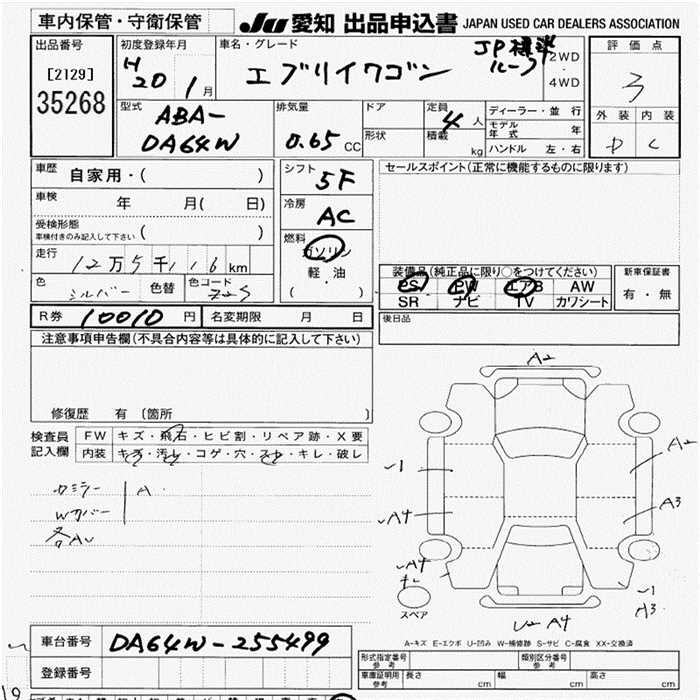 車内保管・守衛保管
JU 愛知 出品申込書 JAPAN USED CAR DEALERS ASSOCIATION
出品番号
[2129]
35268
初度登録年月
H 20 1月
車名・グレード
エブリイワゴン
JP標準ルーフ
2WD
・
4WD
評価点
3
外装 内装
D C
型式
ABA-
DA64W
排気量
0.65 CC
ドア
形状
定員 4人
積載 kg
ディーラー・並行
モデル年式 年
ハンドル 左・右
車歴 自家用・( )
車検 年 月( 日)
受検形態
車検付きのみ記入して下さい ( )
走行 12万5千116km
色 シルバー 色替 色コード Z2S
シフト
5F
冷房
AC
燃料
ガソリン
軽・油
( )
セールスポイント(正常に機能するものに限ります)
装備品(純正品に限り○をつけてください)
PS PW エアB AW
SR ナビ TV カワシート
新車保証書
有・無
後日品
R券 10010 円 名変期限 月 日
注意事項申告欄(不具合内容等は具体的に記入して下さい)
修復歴 有 〔箇所 〕
検査員
記入欄
FW キズ・飛石・ヒビ割・リペア跡・X要
内装 キズ・汚レ・コゲ・穴・スレ・キレ・破レ
カミラー A
Wカバー
各AU
A2
A2
-1
A4
A3
A4
-1
A3
U2 A4
スペア
A-キズ E-エクボ U-凹み W-補修跡 S-サビ C-腐食 XX-交換済
車台番号 DA64W-255499
登録番号
形式指定番号
参考
類別区分番号
参考
車庫証明用
参考
長さ cm 幅 cm 高さ cm
19